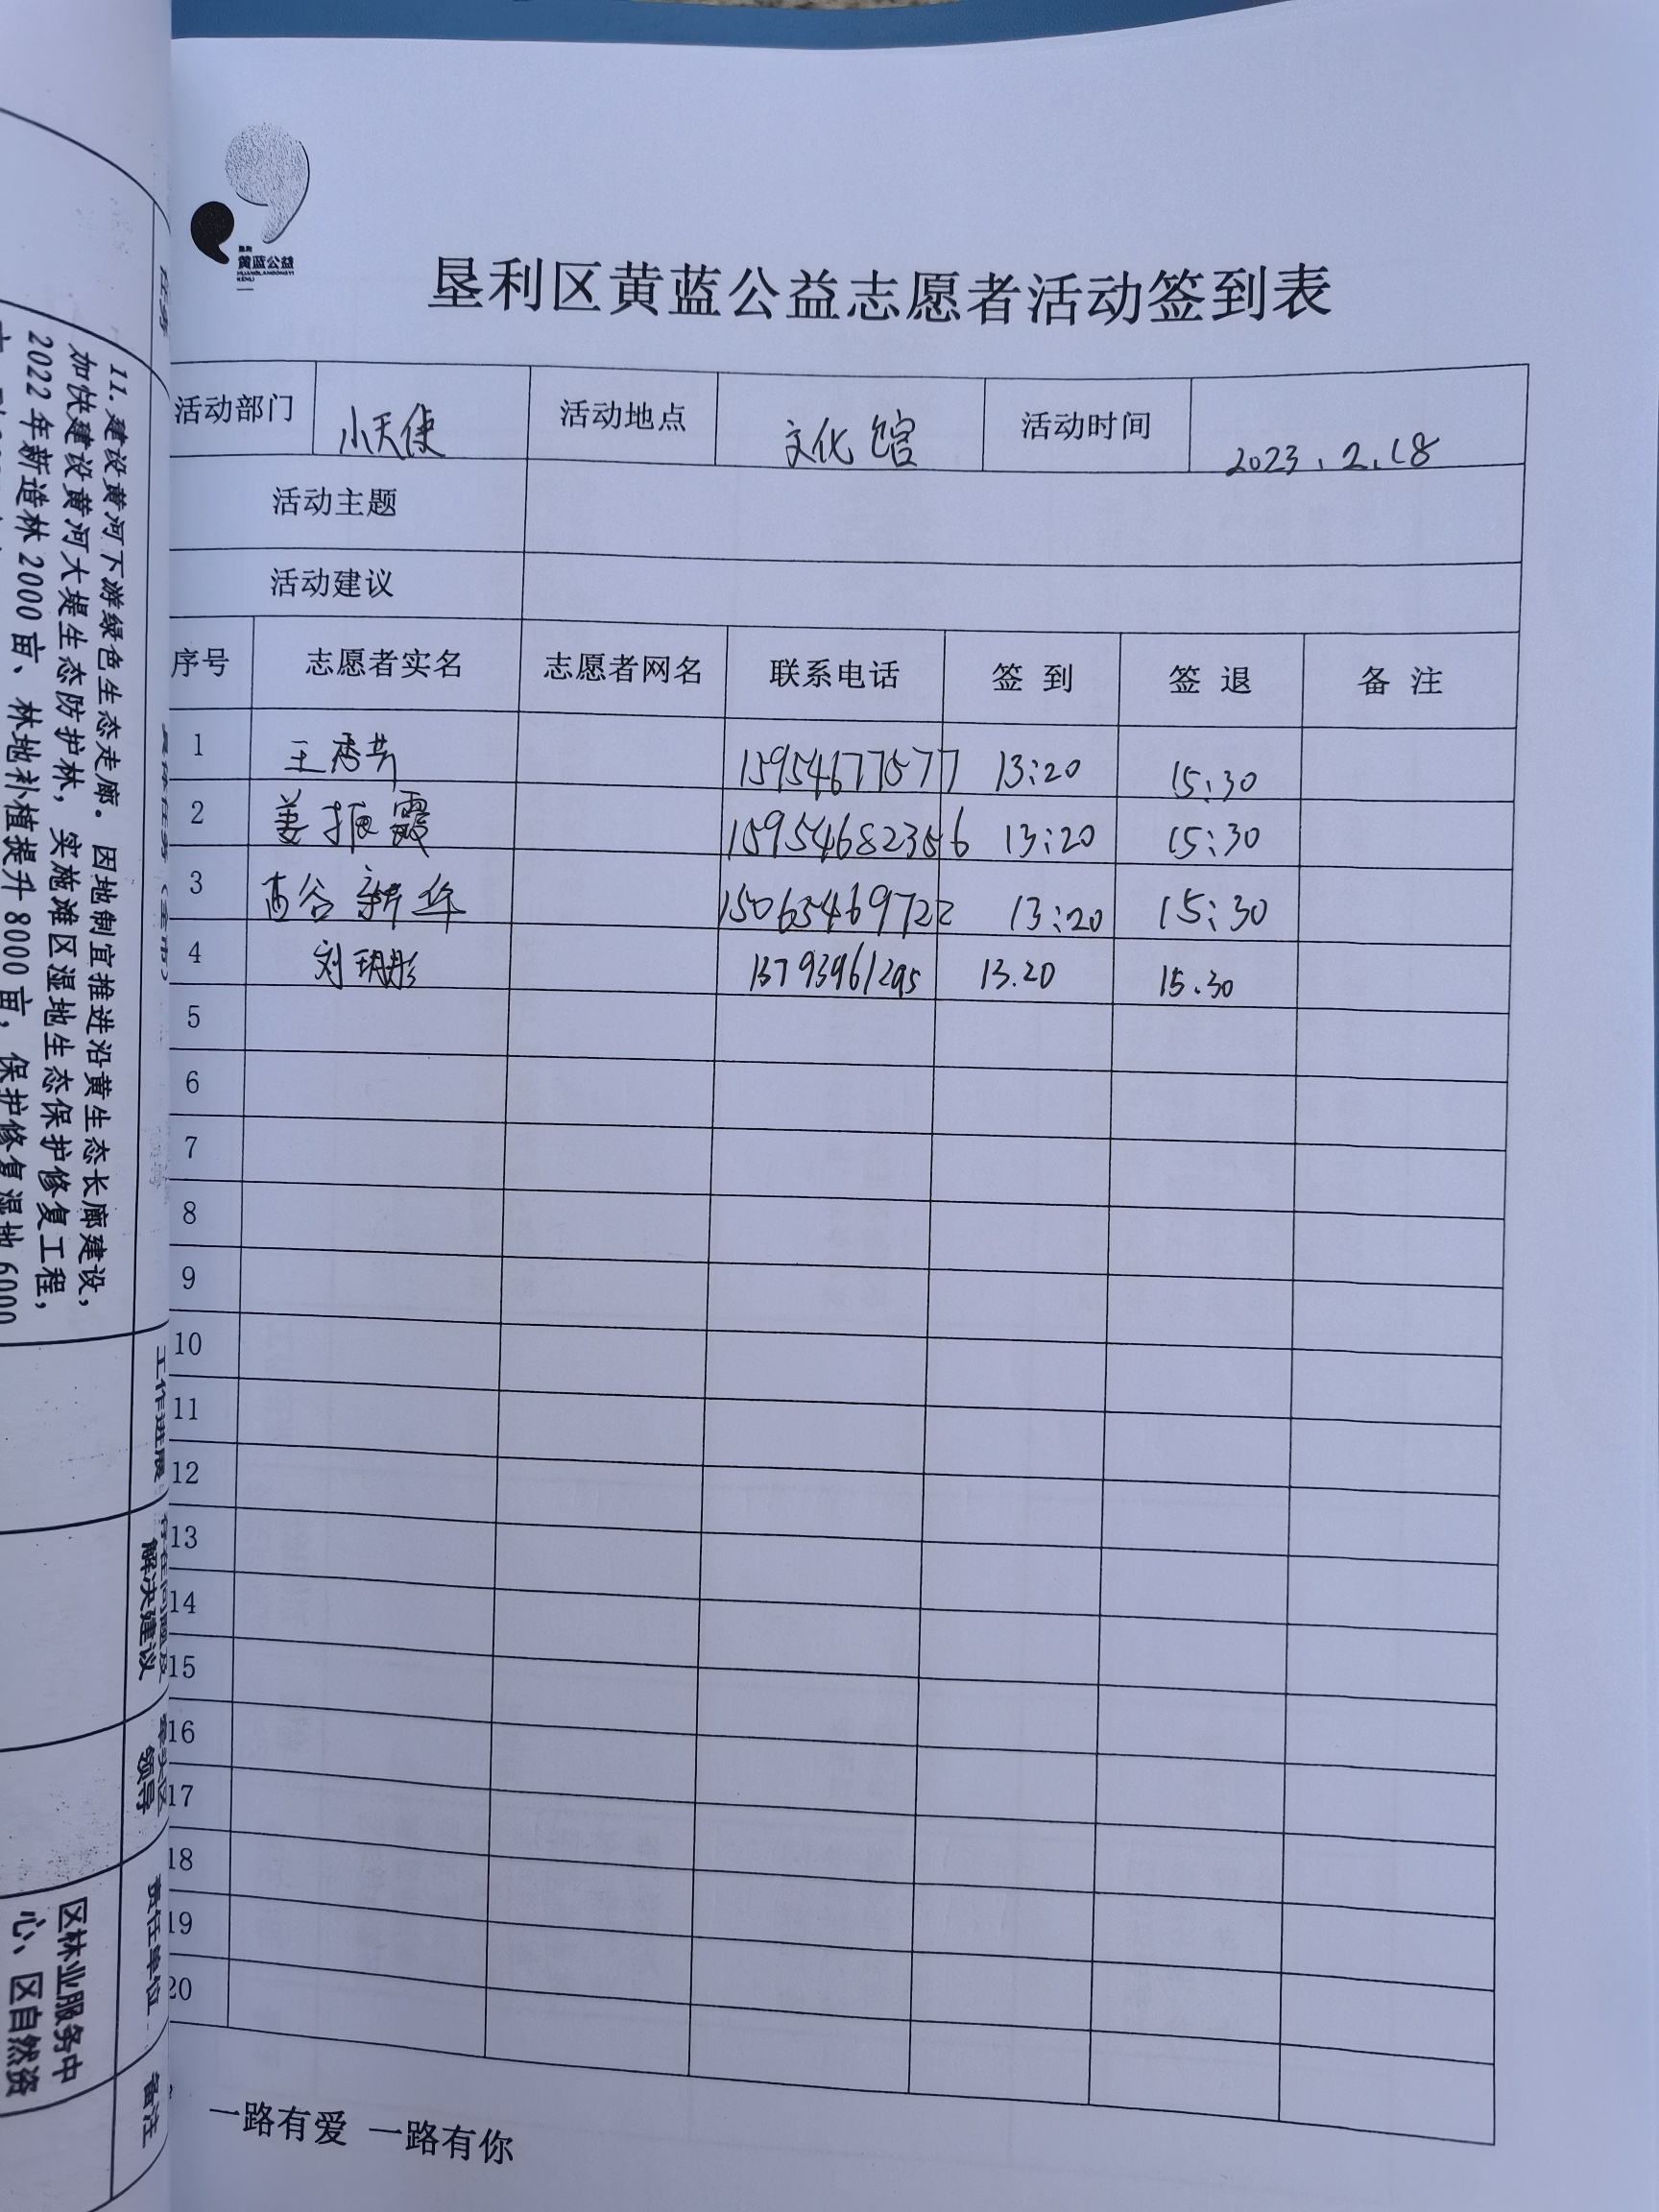 垦利
黄蓝公益
HUANGLANGONGYI
KENLI
垦利区黄蓝公益志愿者活动签到表
活动部门 小天使 活动地点 文化馆 活动时间 2023.2.18
活动主题
活动建议
序号 志愿者实名 志愿者网名 联系电话 签 到 签 退 备 注
1 王秀芳 15954677577 13:20 15:30
2 姜振霞 15954682356 13:20 15:30
3 谷新华 15065469722 13:20 15:30
4 刘玥彤 13793961295 13.20 15.30
5
6
7
8
9
10
11
12
13
14
15
16
17
18
19
20
一路有爱 一路有你
11.建设黄河下游绿色生态走廊。因地制宜推进沿黄生态长廊建设，
加快建设黄河大堤生态防护林，实施滩区湿地生态保护修复工程，
2022年新造林2000亩、林地补植提升8000亩，保护修复湿地6000
工作进展
解决建议
领导
责任单位
备注
区林业服务中
心、区自然资